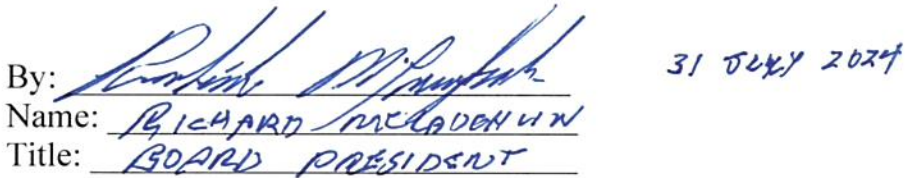 By: 31 JULY 2024
Name: RICHARD MCLAUGHLIN
Title: BOARD PRESIDENT